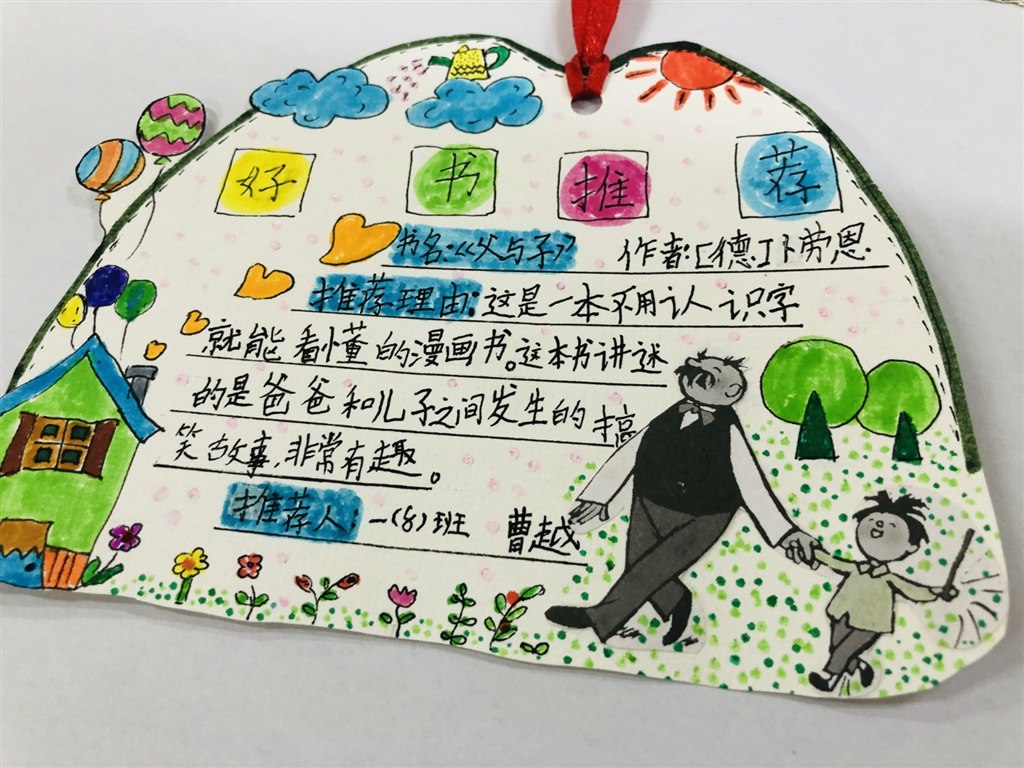 好书推荐
书名:《父与子》 作者:[德]卜劳恩.
推荐理由:这是一本不用认识字
就能看懂的漫画书。这本书讲述
的是爸爸和儿子之间发生的搞
笑故事,非常有趣。
推荐人:一(8)班 曹越